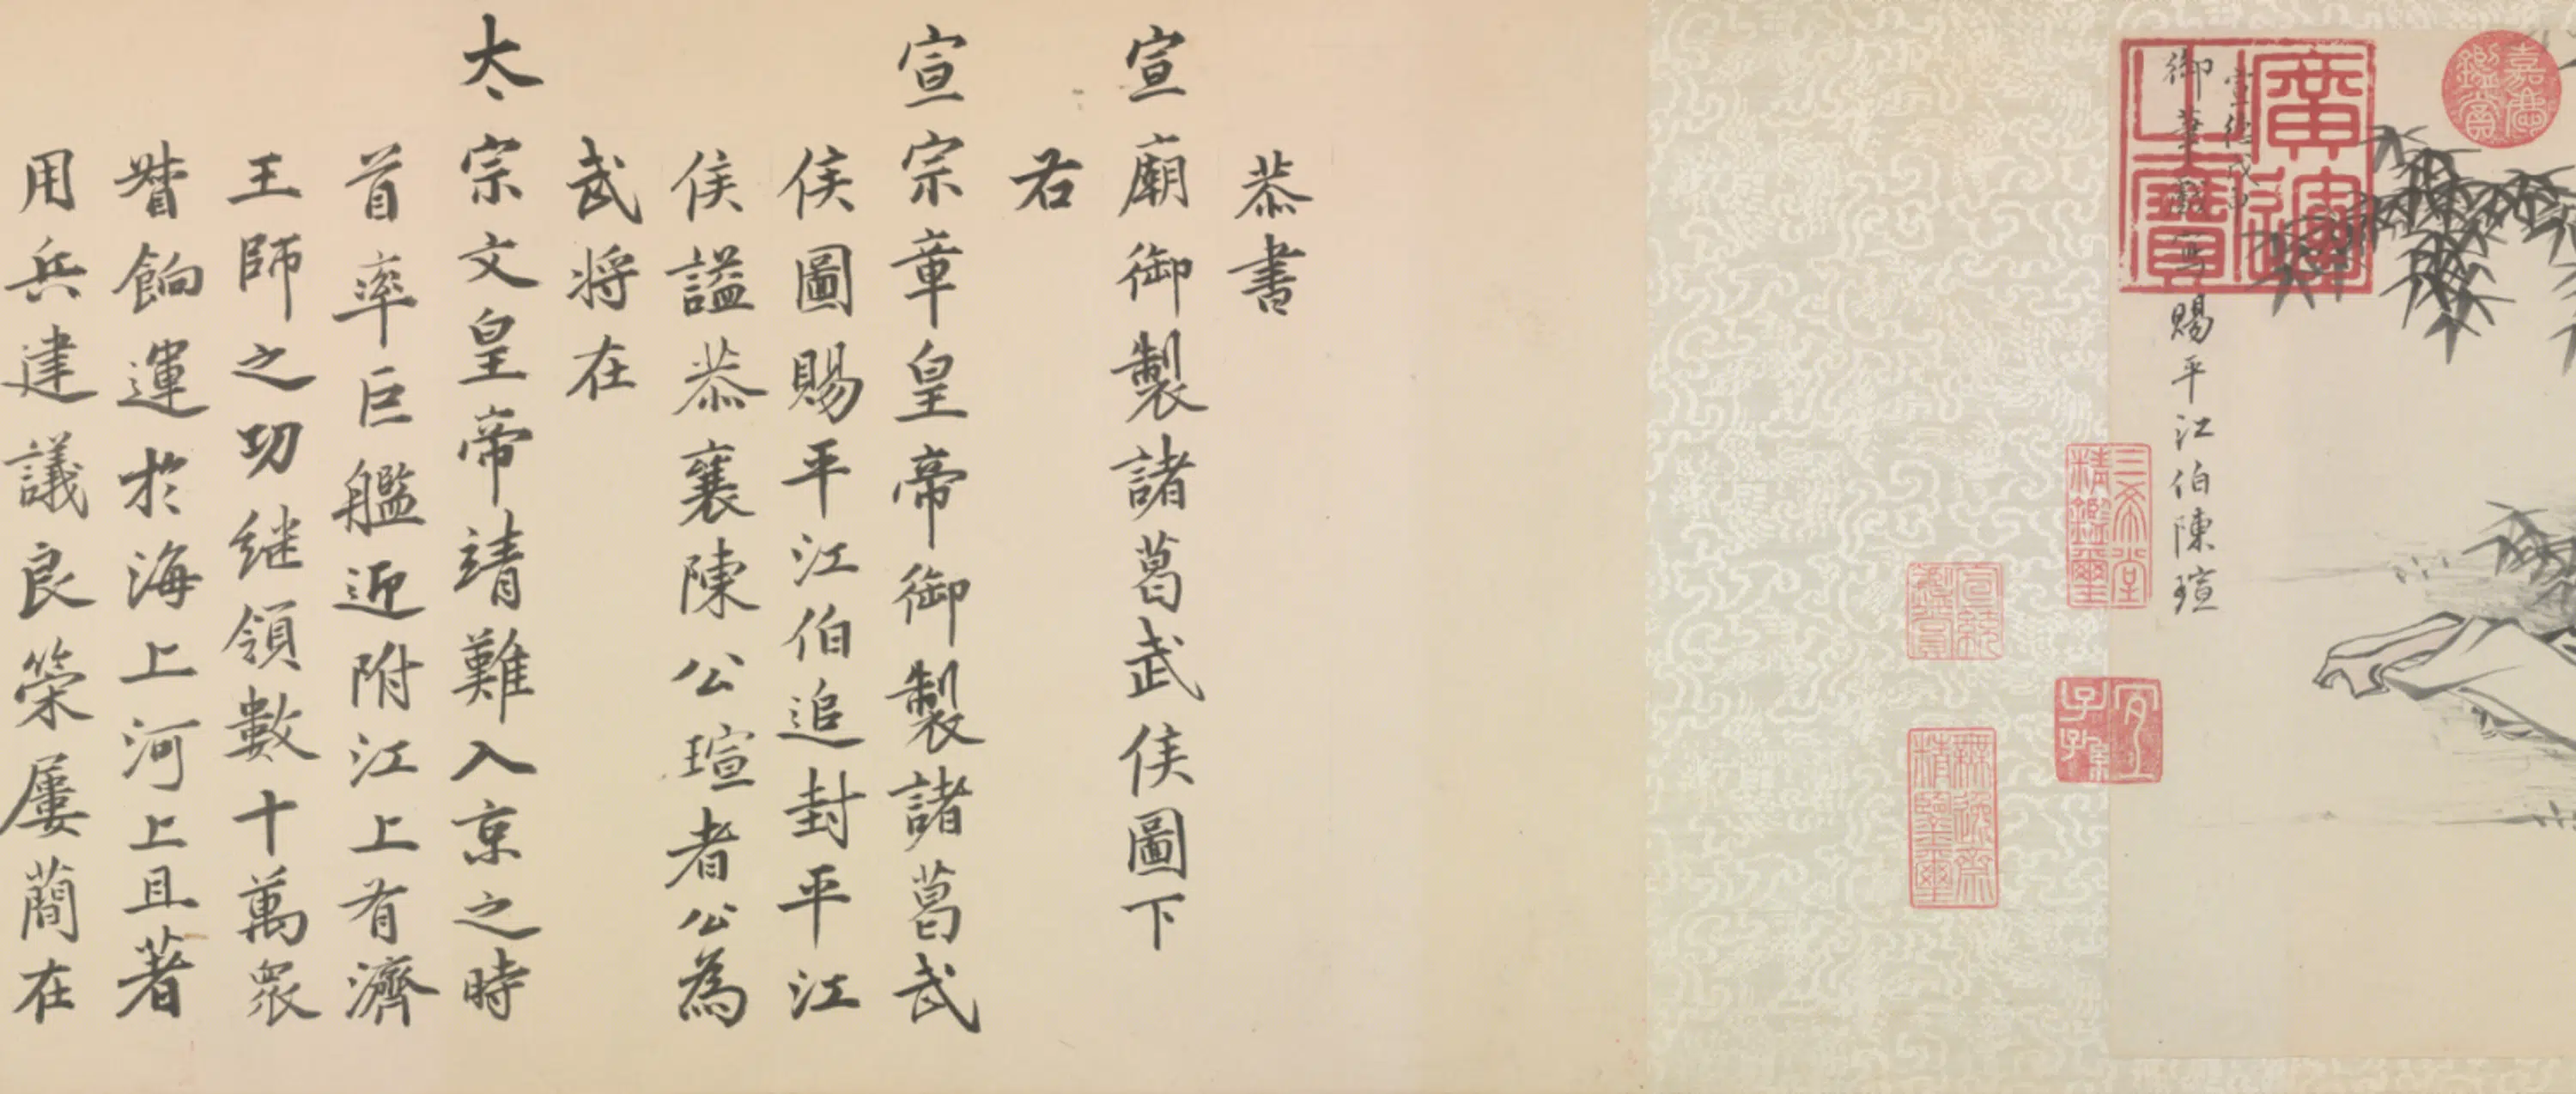 嘉慶鑑賞
宣德戊申
御筆戲寫賜平江伯陳瑄
廣運之寶
三希堂精鑑璽
宜子孫
宣統鑑賞
無逸齋精鑒璽
恭書
宣廟御製諸葛武侯圖下
右
宣宗章皇帝御製諸葛武
侯圖賜平江伯追封平江
侯謚恭襄陳公瑄者公為
武将在
太宗文皇帝靖難入京之時
首率巨艦迎附江上有濟
王師之功継領數十萬衆
督餉運於海上河上且著
用兵建議良策屢蕳在